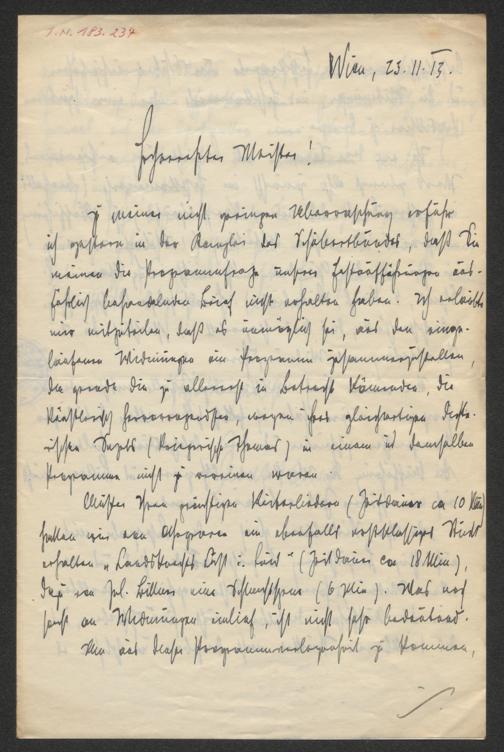 I.N. 183.234
Wien, 23.11.13.
Hochverehrter Meister!
Zu meiner nicht geringen Überraschung erfuhr
ich gestern in der Kanzlei des Schubertbundes, daß Sie
meinen die Programmfrage unserer Festaufführungen aus-
führlich behandelnden Brief nicht erhalten haben. Ich erlaubte
mir mitzuteilen, daß es unmöglich sei, aus den einge-
laufenen Widmungen ein Programm zusammenzustellen,
da gerade die zu allererst in Betracht kommenden, die
künstlerisch hervorragendsten, wegen ihres gleichartigen dichte-
rischen Sujets (kriegerische Themas) in einem u. demselben
Programme nicht zu vereinen waren.
Außer Ihren prächtigen Reiterliedern (Zeitdauer ca 10 Min)
hatten wir von Weg ein ebenfalls erstklassiges Stück
erhalten „Landsknechts Lust u. Leid" (Zeitdauer ca 18 Min),
dazu von Jul. Bittner eine (6 Min). Was noch
sonst an Widmungen einlief, ist nicht sehr bedeutend.
Um aus dieser Programmverlegenheit zu kommen,